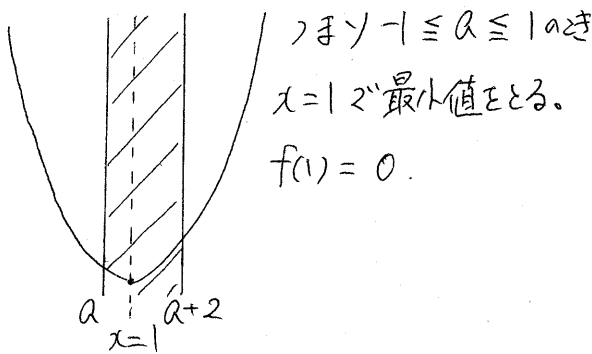 つまり -1 ≦ a ≦ 1 のとき
x=1 で最小値をとる。
f(1) = 0.
a
a+2
x=1